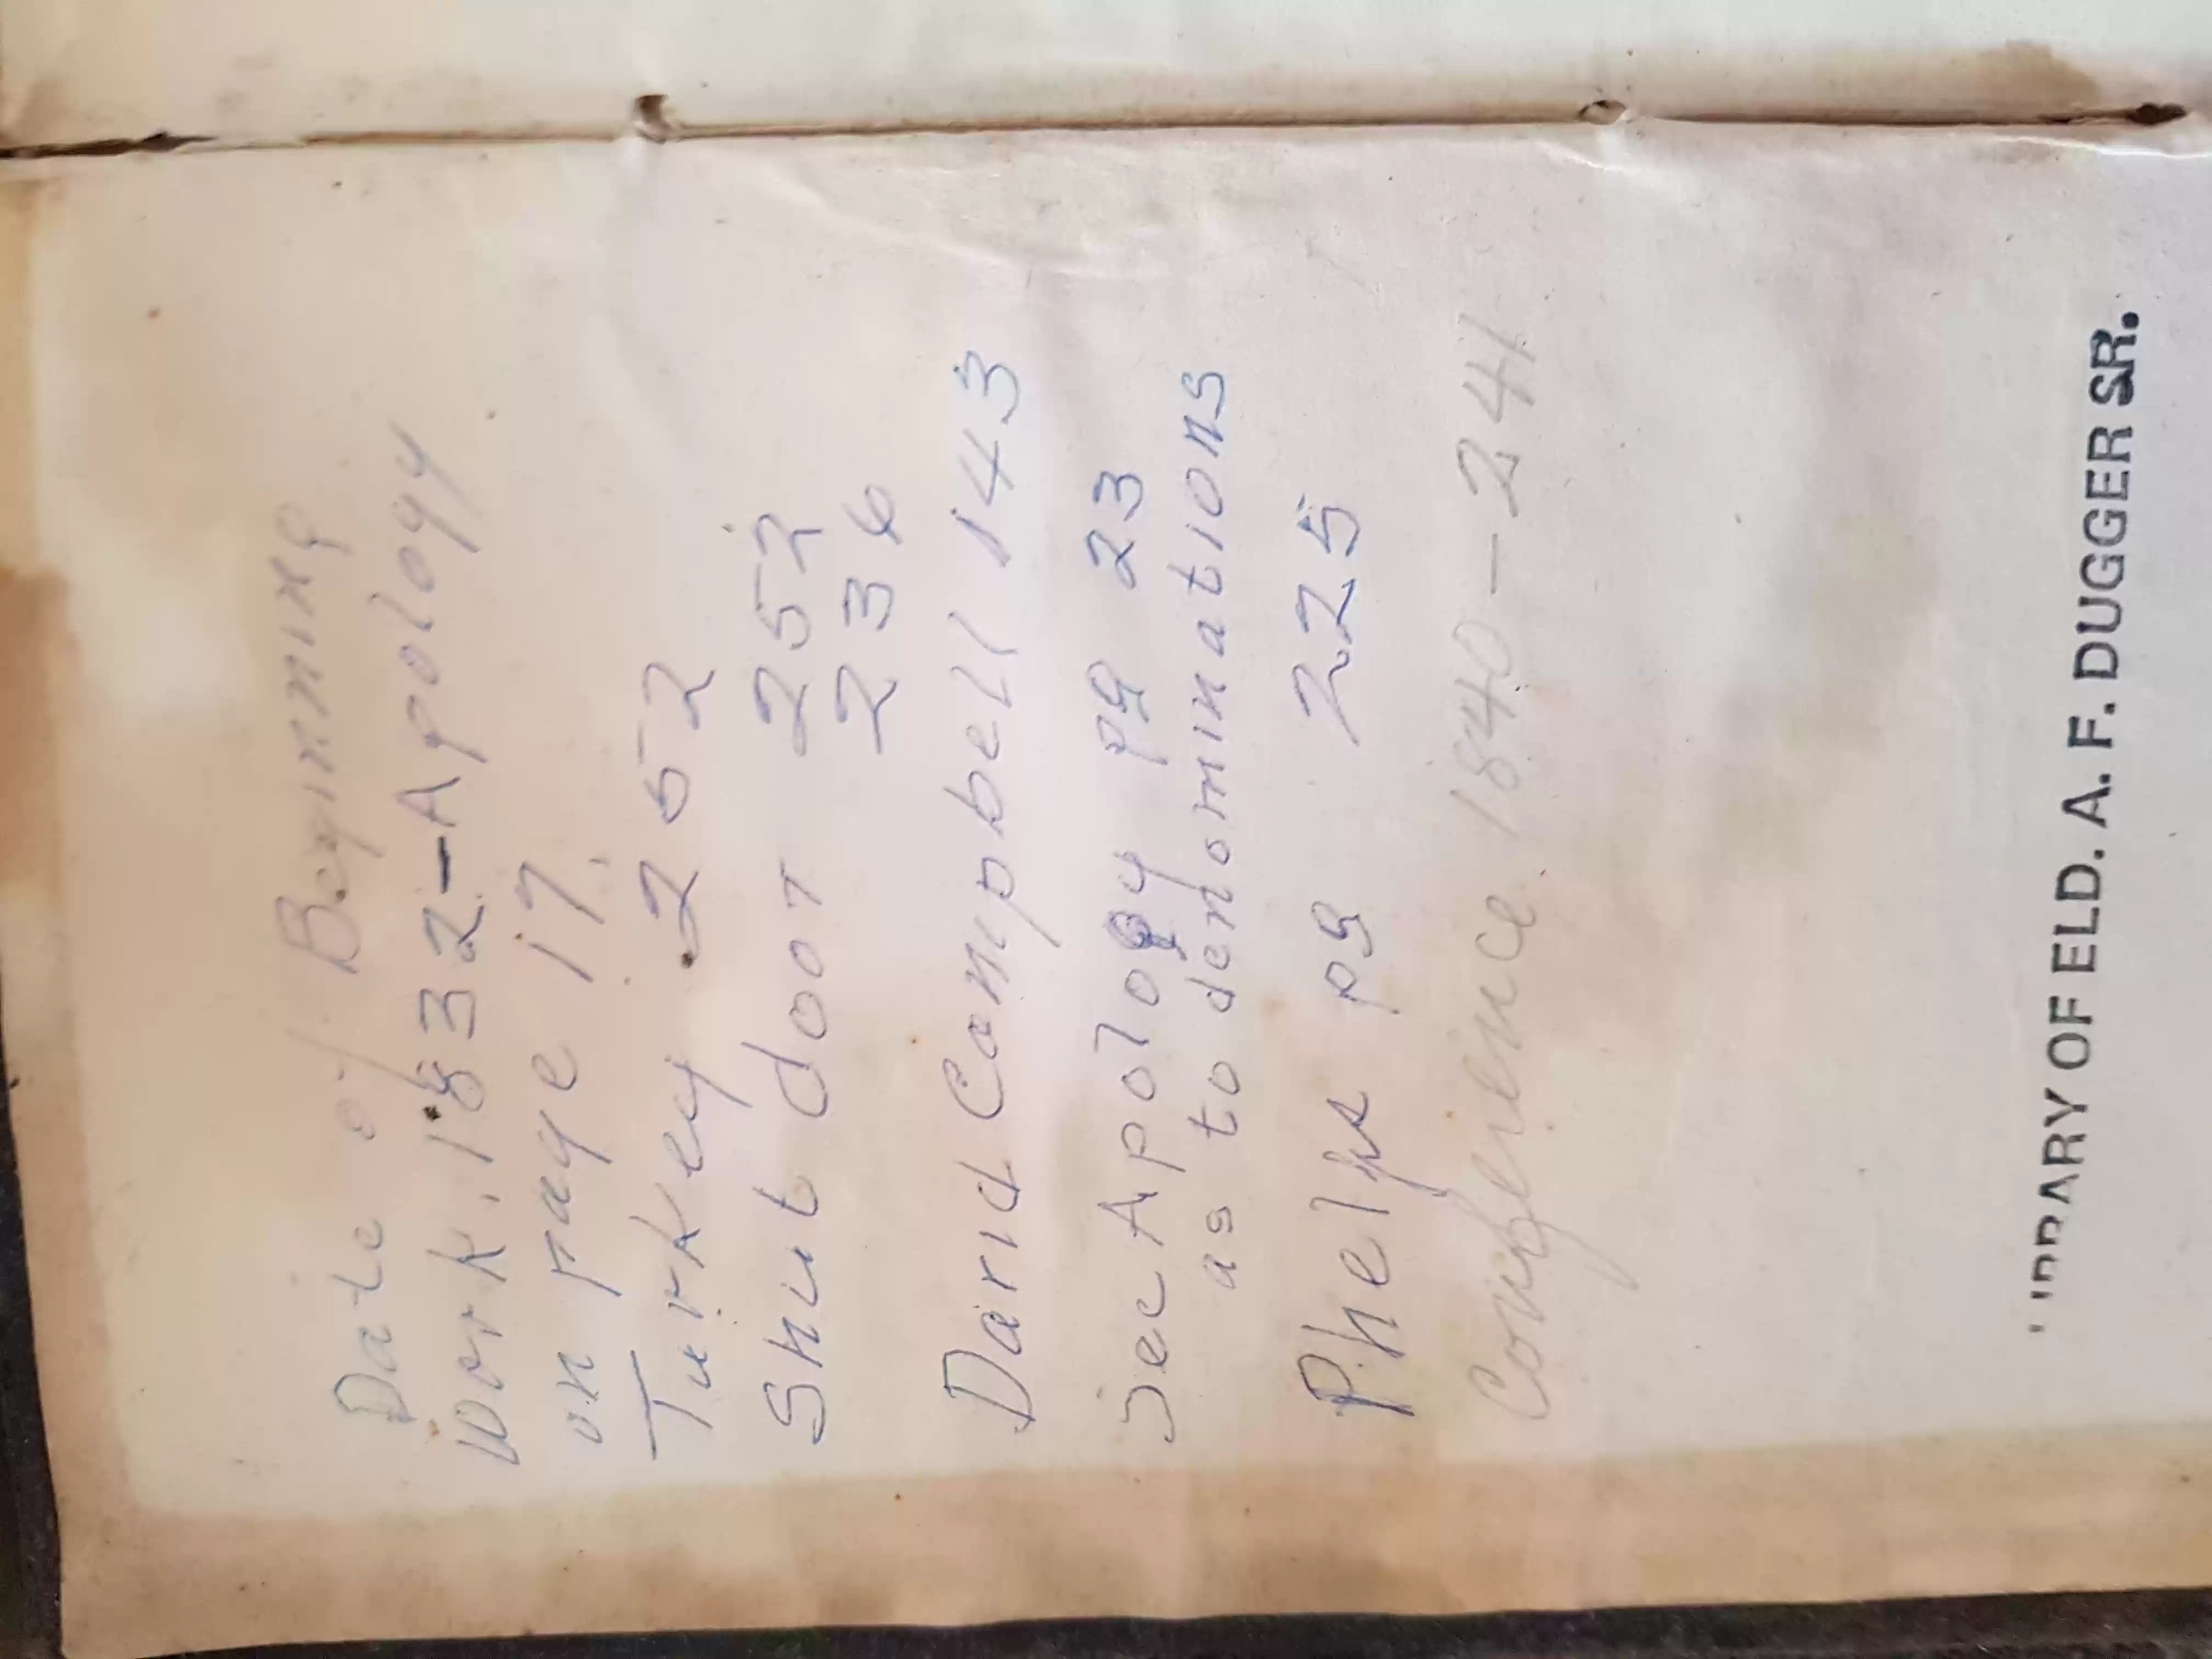 Date of Beginning
Work. 1832-Apology
on page 17.
Turkey 252
Shut door 252
236
David Campbell 143
See Apology pg 23
as to denominations
Phelps pg 225
Conference 1840-241
LIBRARY OF ELD. A. F. DUGGER SR.